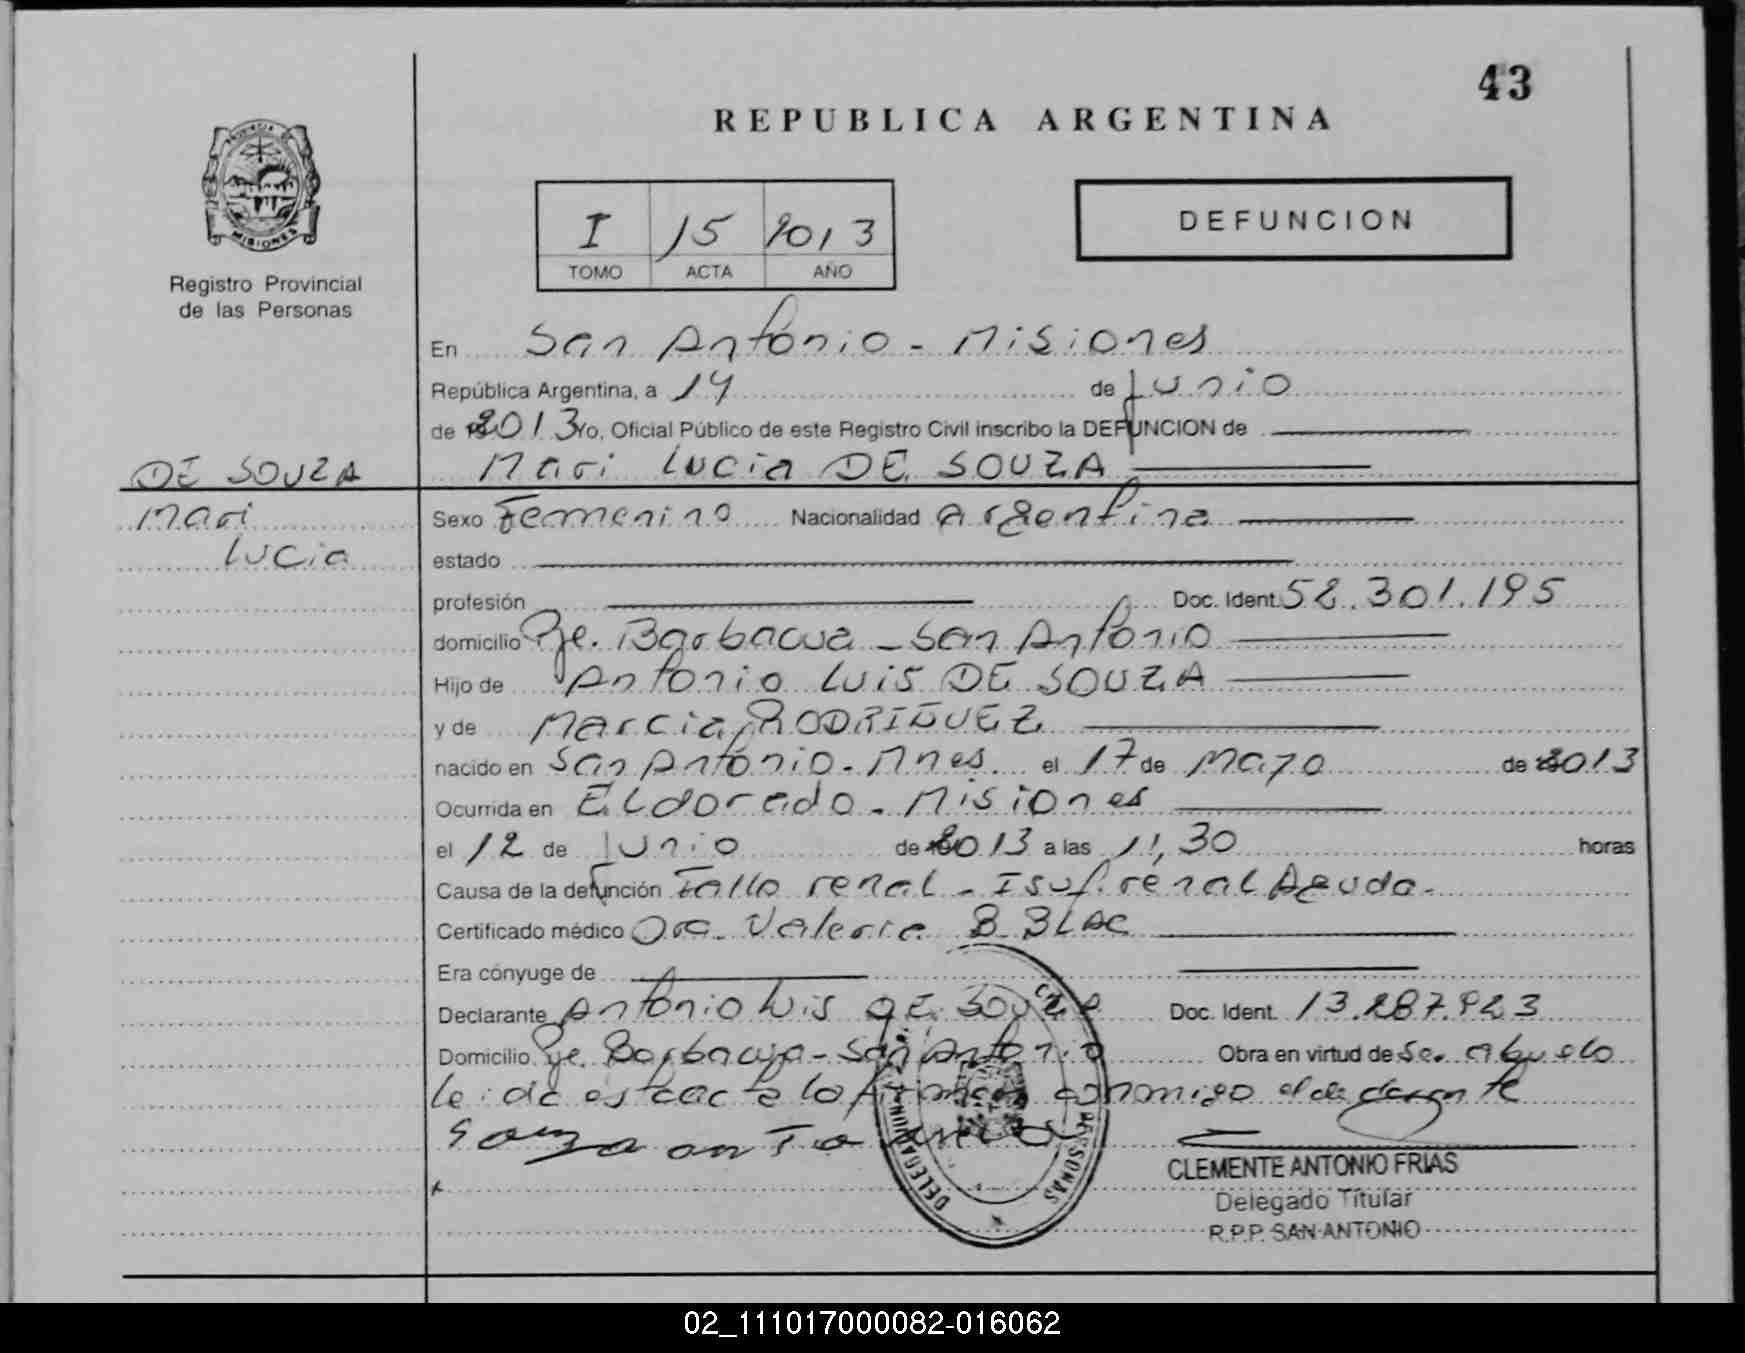 43
REPUBLICA ARGENTINA
PROVINCIA DE
MISIONES
Registro Provincial
de las Personas
I 15 2013
TOMO ACTA AÑO
DEFUNCION
En San Antonio - Misiones
República Argentina, a 14 de Junio
de 2013 Yo, Oficial Público de este Registro Civil inscribo la DEFUNCION de
Mari Lucia DE SOUZA
DE SOUZA
Mari
Lucia
Sexo Femenino Nacionalidad Argentina
estado
profesión Doc. Ident. 52.301.195
domicilio Pje. Barbacua - San Antonio
Hijo de Antonio Luis DE SOUZA
y de Marcia RODRIGUEZ
nacido en San Antonio - Mnes. el 17 de Mayo de 2013
Ocurrida en Eldorado - Misiones
el 12 de Junio de 2013 a las 11,30 horas
Causa de la defunción Fallo renal - Isuf. renal Aguda.
Certificado médico Dra. Valeria B. BLAC
Era cónyuge de
Declarante Antonio Luis DE SOUZA Doc. Ident. 13.287.923
Domicilio Pje. Barbacua - San Antonio Obra en virtud de Ser abuelo
leida esta acta la firman conmigo el declarante
CLEMENTE ANTONIO FRIAS
Delegado Titular
R.P.P. SAN ANTONIO
02_111017000082-016062